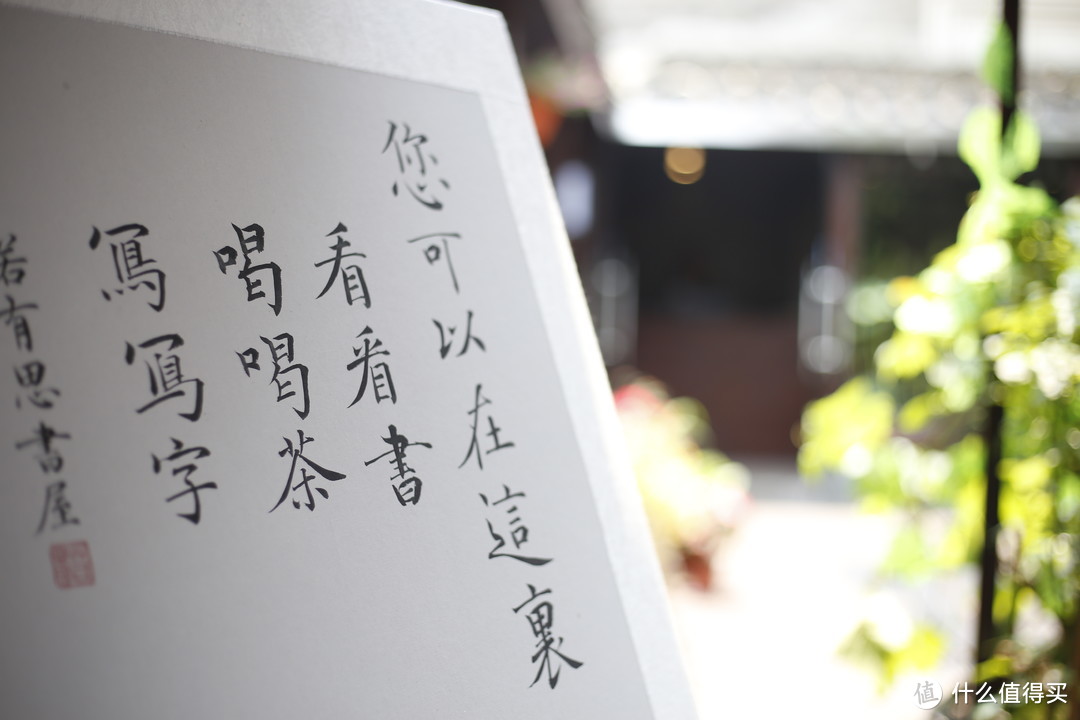 您可以在這裏
看看書
喝喝茶
寫寫字
若有思書屋
值 什么值得买